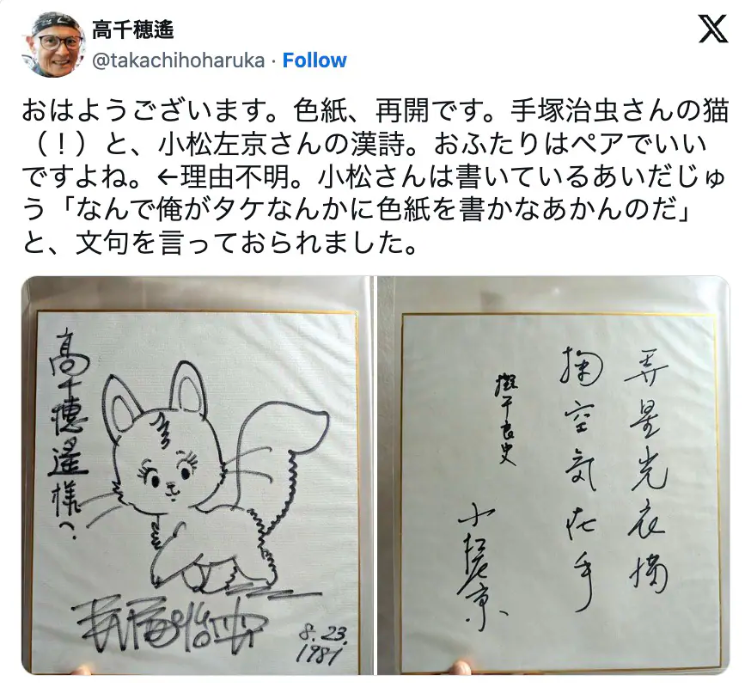 高千穂遙
@takachihoharuka · Follow
おはようございます。色紙、再開です。手塚治虫さんの猫
（！）と、小松左京さんの漢詩。おふたりはペアでいい
ですよね。←理由不明。小松さんは書いているあいだじゅ
う「なんで俺がタケなんかに色紙を書かなあかんのだ」
と、文句を言っておられました。
高千穂遙様へ
手塚治虫
8.23.
1981
弄星光衣満
掬空気在手
擬于良史
小松左京